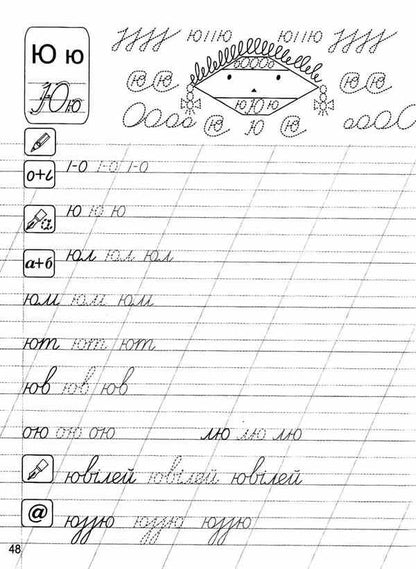 Ю ю
Юю
ю//ю ю//ю
ю ю ю ю
ююю
ю Ю ю
о+і
І-О І-О І-О
ю ю ю
а+б
юл юл юл
юм юм юм
ют ют ют
юв юв юв
ою ою ою лю лю лю
ювілей ювілей ювілей
@
48